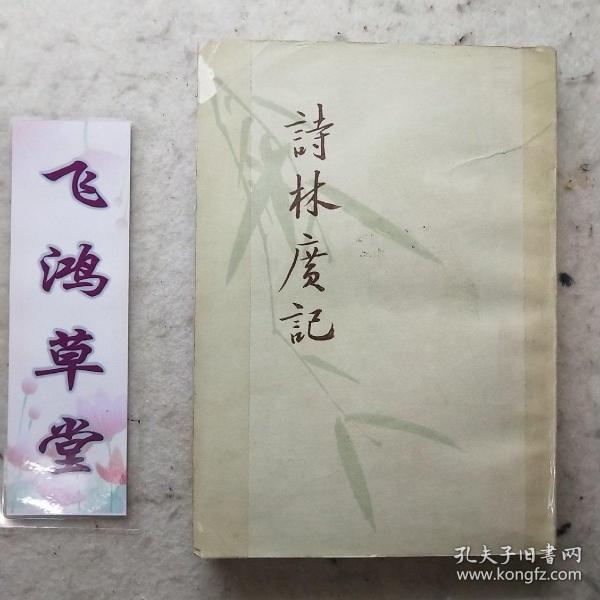 飞鸿草堂
詩林廣記
孔夫子旧书网
www.kongfz.com